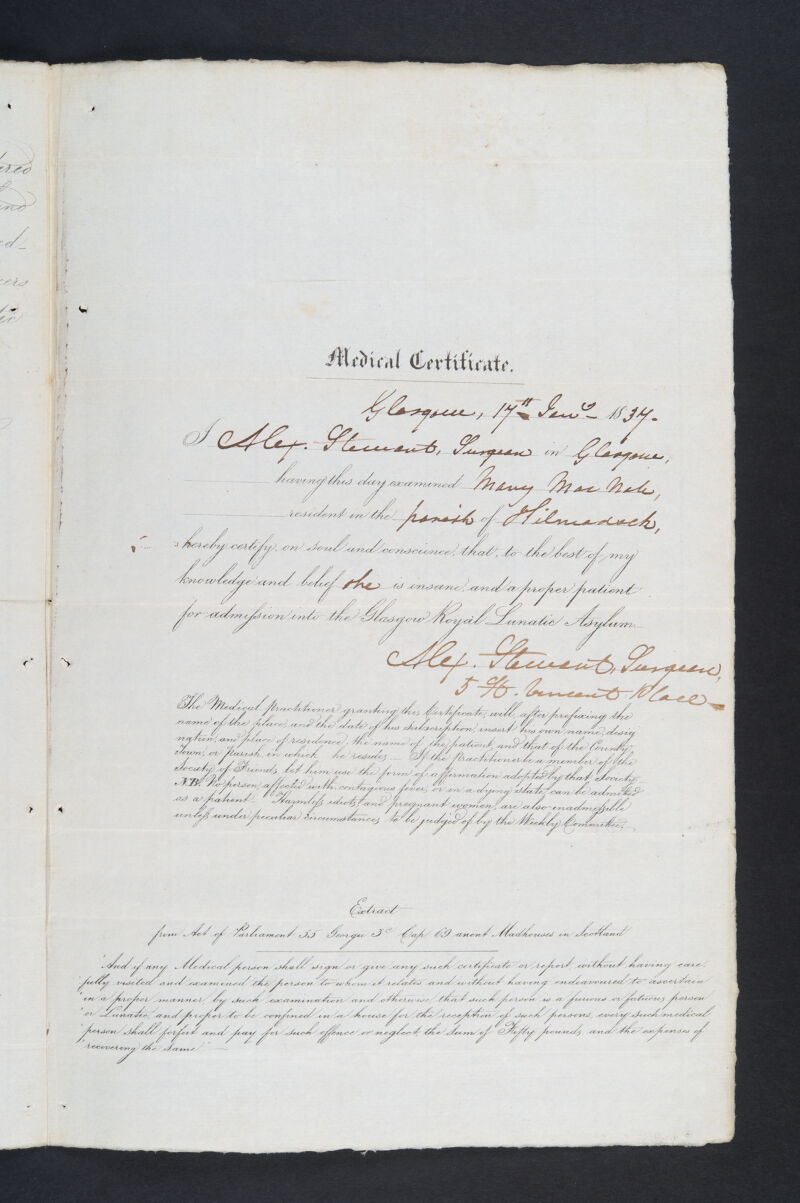 ered
and
ed-
cers
tic
Medical Certificate.
Glasgow, 17th Jany 1837.
I Alex. Stewart, Surgeon in Glasgow,
having this day examined Mary Mac Nab,
resident in the parish of Kilmadock,
hereby certify, on soul and conscience, that, to the best of my
knowledge and belief she is insane, and a proper patient
for admission into the Glasgow Royal Lunatic Asylum.
Alex. Stewart, Surgeon,
5 St. Vincent Place
The Medical Practitioner granting this Certificate, will, after prefixing the
name of the place, and the date of his subscription, insert his own name, desig
nation, and place of residence, the name of the patient, and that of the County,
Town, or Parish, in which he resides. If the Practitioner be a member of the
Society of Friends, let him use the form of affirmation adopted by that Society.
N.B. No person affected with contagious fever, or in a dying state, can be admitted
as a patient. Harmless idiots, and pregnant women, are also inadmissible
unless under peculiar circumstances, to be judged of by the Weekly Committee.
Extract
from Act of Parliament 55 George 3d Cap 69 anent Madhouses in Scotland
"And if any Medical person shall sign or give any such certificate or report, without having care-
"fully visited and examined the person to whom it relates and without having endeavoured to ascertain
"in a proper manner, by such examination and otherwise, that such person is a furious or fatuous person
"or Lunatic, and proper to be confined in a house for the reception of such persons, every such medical
"person shall forfeit and pay for such offence or neglect, the sum of Fifty pounds, and the expenses of
"recovering the same"